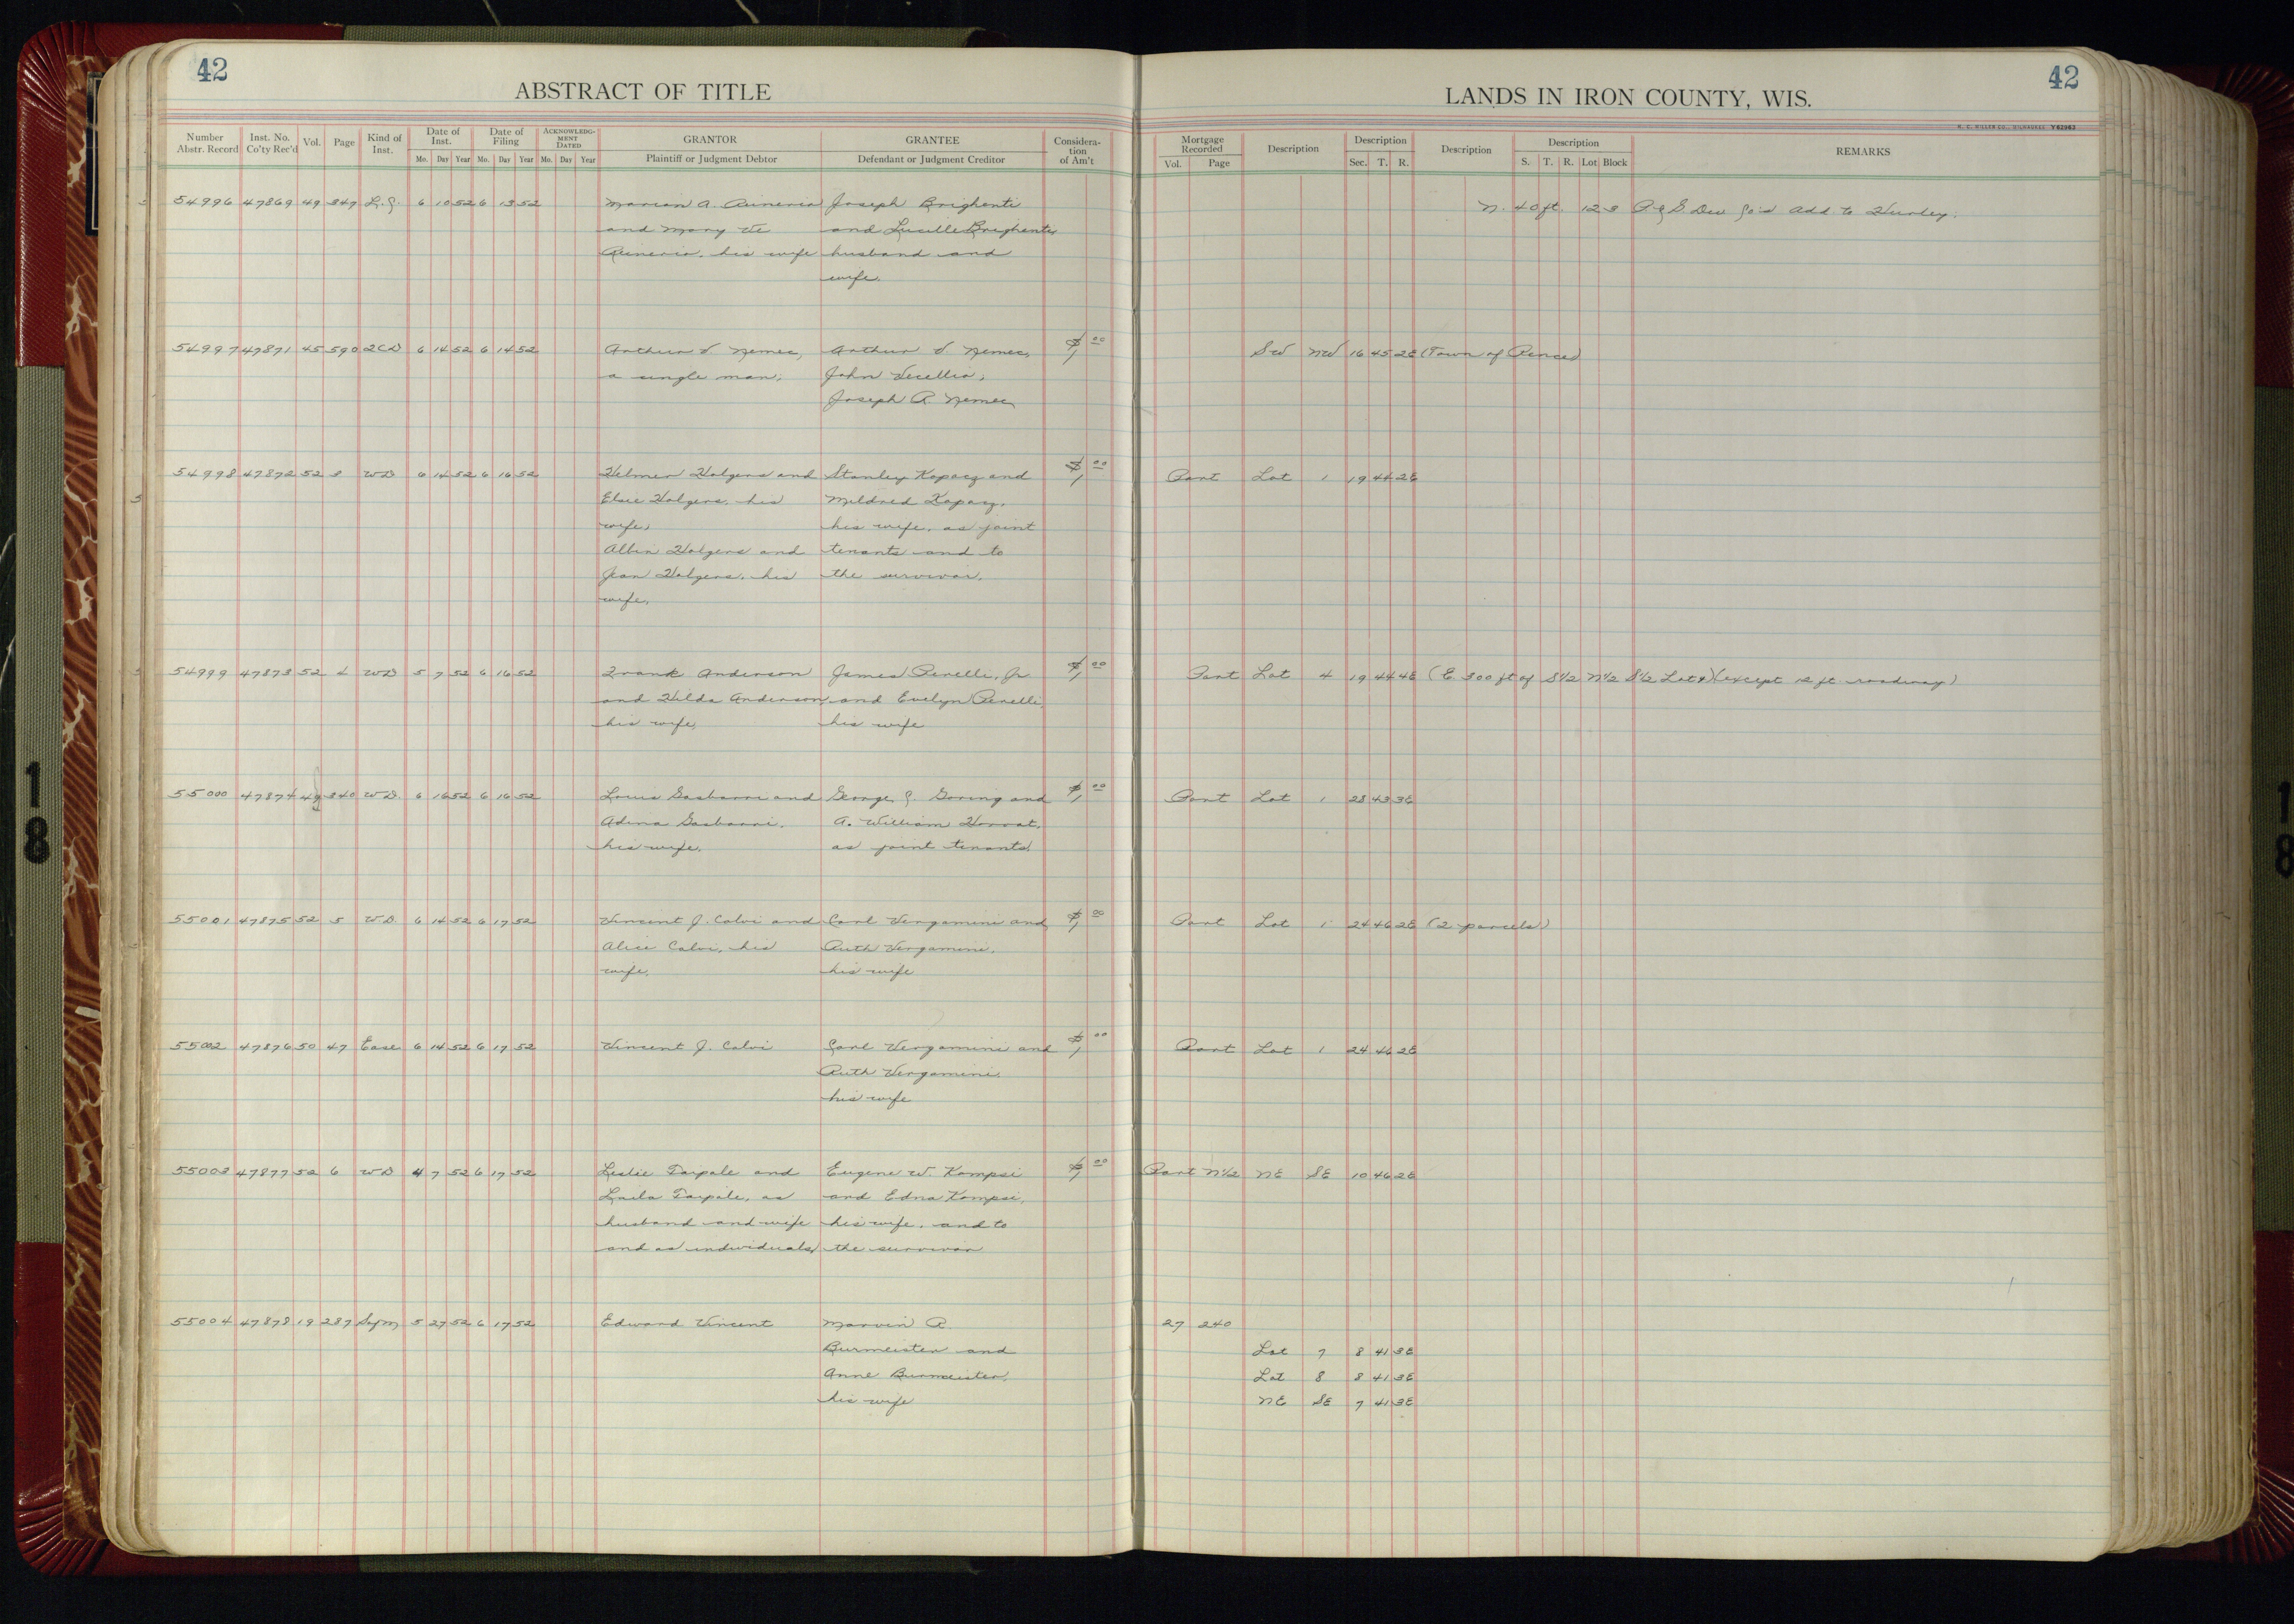 42
ABSTRACT OF TITLE
LANDS IN IRON COUNTY, WIS.
42
H. C. MILLER CO., MILWAUKEE Y62963
Number Abstr. Record | Inst. No. Co'ty Rec'd | Vol. | Page | Kind of Inst. | Date of Inst. Mo. Day Year | Date of Filing Mo. Day Year | ACKNOWLEDGMENT DATED Mo. Day Year | GRANTOR Plaintiff or Judgment Debtor | GRANTEE Defendant or Judgment Creditor | Consideration of Am't
Mortgage Recorded Vol. Page | Description | Description Sec. T. R. | Description | Description S. T. R. Lot Block | REMARKS
54996 47869 49 347 6 10 52 6 13 52 Marian A. Joseph Brighenti N. 40 ft. 12 3 Add. to Hurley.
and Mary and Lucille Brighenti,
his wife husband and
wife.
54997 47871 45 590 2CD 6 14 52 6 14 52 Arthur V. Nemec, Arthur V. Nemec, $1 00 SW NW 16 45 2E (Town of Pence)
a single man, John Vecellio,
Joseph R. Nemec
54998 47872 52 3 WD 6 14 52 6 16 52 Helmer Holgers and Stanley Kopacz and $1 00 Part Lot 1 19 44 2E
5
Elsie Holgers, his Mildred Kopacz,
wife, his wife, as joint
Albin Holgers and tenants and to
Jean Holgers, his the survivor.
wife.
54999 47873 52 4 WD 5 7 52 6 16 52 Frank Anderson James Perelli, Jr. $1 00 Part Lot 4 19 44 4E (E 300 ft of S1/2 N1/2 S1/2 Lot 4) (except 12 ft. roadway)
and Hilda Anderson, and Evelyn Perelli,
his wife, his wife
55000 47874 49 340 W.D. 6 16 52 6 16 52 Louis Gasbarri and George J. Goring and $1 00 Part Lot 1 28 43 3E
Adena Gasbarri, A. William Horvat,
his wife, as joint tenants.
55001 47875 52 5 W.D. 6 14 52 6 17 52 Vincent J. Calvi and Carl Vergamini and $1 00 Part Lot 1 24 46 2E (2 parcels)
Alice Calvi, his Ruth Vergamini,
wife, his wife
55002 47876 50 47 Ease 6 14 52 6 17 52 Vincent J. Calvi Carl Vergamini and $1 00 Part Lot 1 24 46 2E
Ruth Vergamini,
his wife
55003 47877 52 6 WD 4 7 52 6 17 52 Leslie Tarpale and Eugene W. Kompsi $1 00 Part N1/2 NE SE 10 46 2E
Laila Tarpale, as and Edna Kompsi,
husband and wife his wife, and to
and as individuals, the survivor
55004 47878 19 287 5 27 52 6 17 52 Edward Vincent Marvin R. 27 240
Burmeister and Lot 7 8 41 3E
Anne Burmeister, Lot 8 8 41 3E
his wife NE SE 7 41 3E
18
18